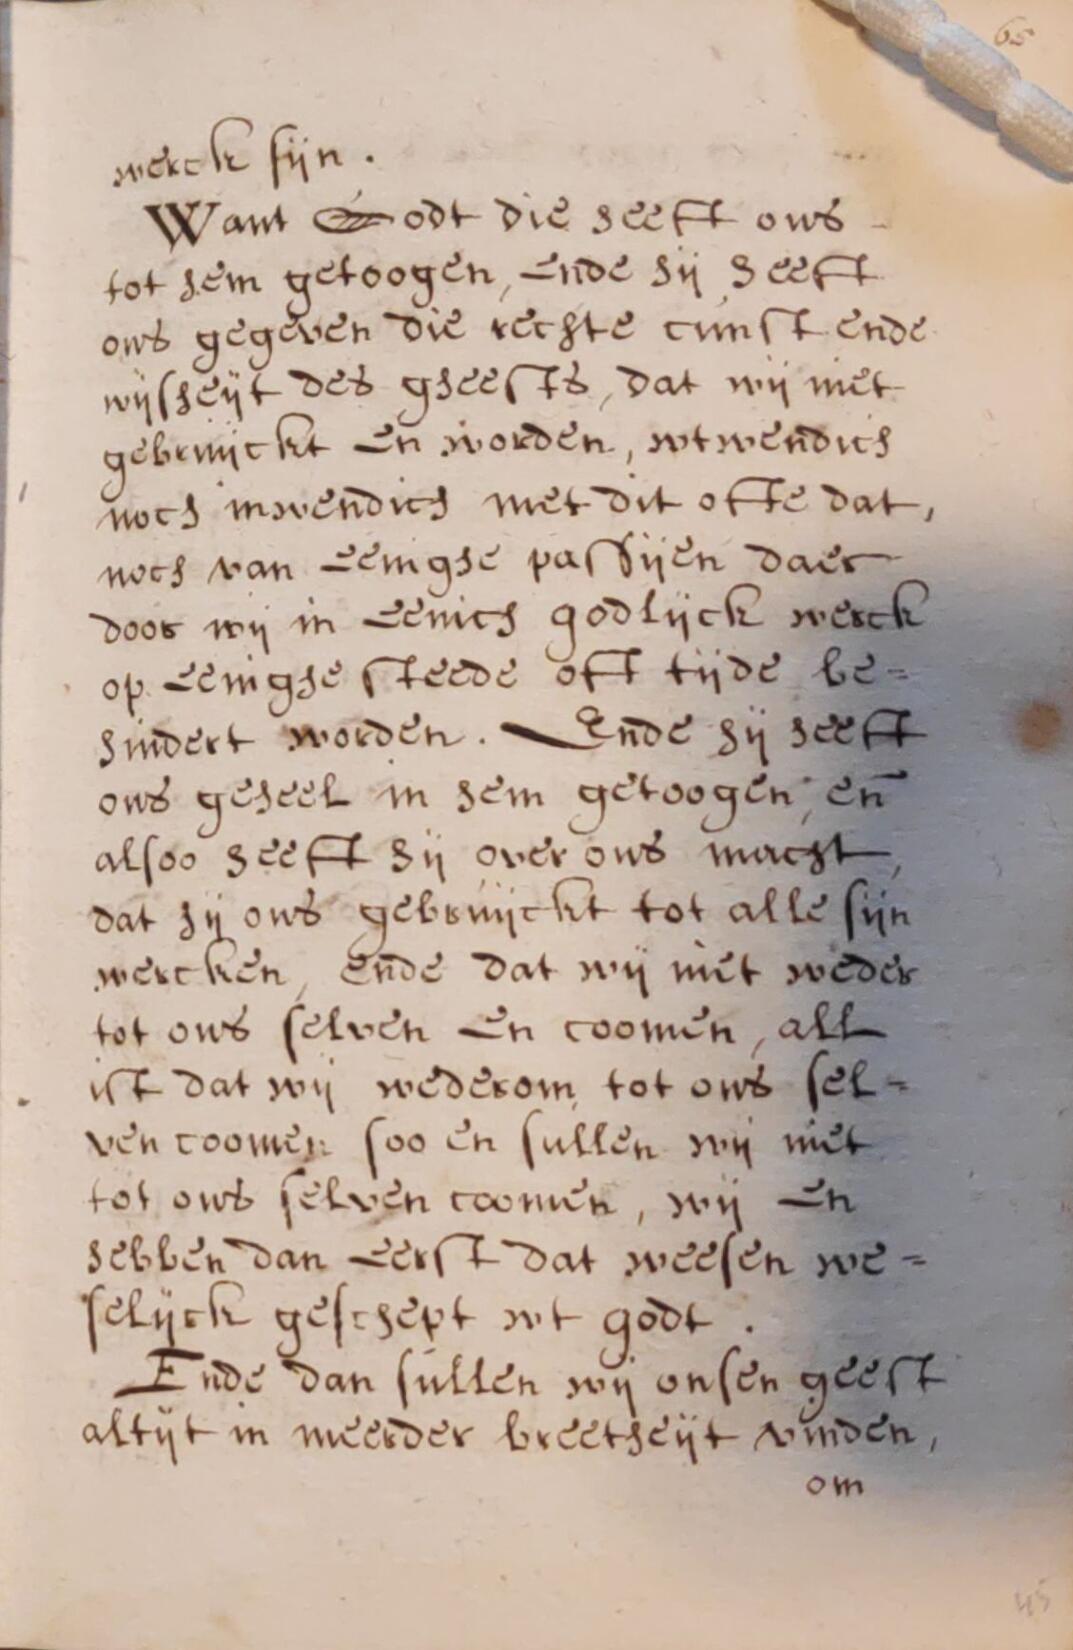 65
werck sijn.
Want Godt die heeft ons
tot hem getoogen, ende hij heeft
ons gegeven die rechte cunst ende
wijsheijt des gheests, dat wij niet
gebruijckt en worden, wtwendich
noch inwendich met dit ofte dat,
noch van eenighe passijen daer
door wij in eenich godlijck werck
op eenighe steede oft tijde be=
hindert worden. Ende hij heeft
ons geheel in hem getoogen, en̄
alsoo heeft hij over ons macht,
dat hij ons gebruijckt tot alle sijn
wercken, ende dat wij niet weder
tot ons selven en coomen, all
ist dat wij wederom tot ons sel=
ven coomen soo en sullen wij niet
tot ons selven coomen, wij en
hebben dan eerst dat weesen we=
selijck geschept wt godt.
Ende dan sullen wij onsen geest
altijt in meerder breetheijt vinden,
om
45